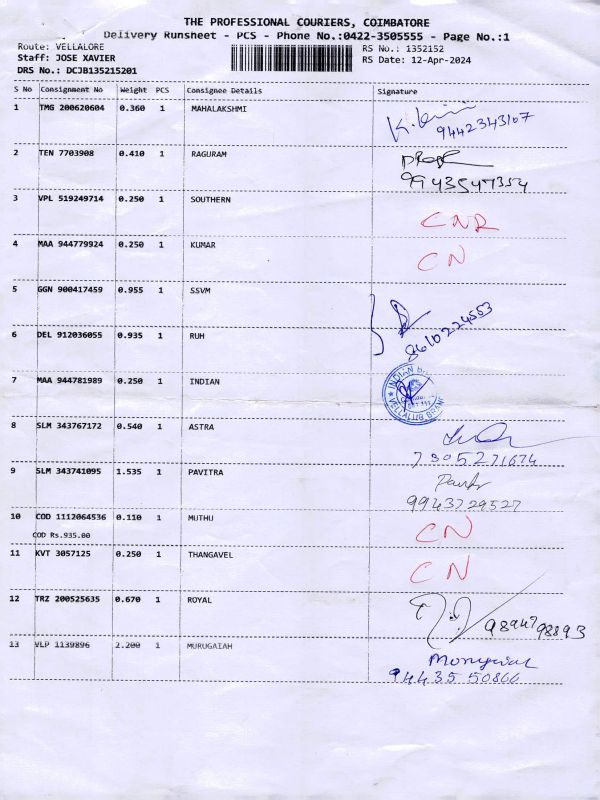 THE PROFESSIONAL COURIERS, COIMBATORE
Delivery Runsheet - PCS - Phone No.:0422-3505555 - Page No.:1
Route: VELLALORE RS No.: 1352152
Staff: JOSE XAVIER RS Date: 12-Apr-2024
DRS No.: DCJB135215201
S No Consignment No Weight PCS Consignee Details Signature
1 TMG 200620604 0.360 1 MAHALAKSHMI
9442343107
2 TEN 7703908 0.410 1 RAGURAM
9943547354
3 VPL 519249714 0.250 1 SOUTHERN CNR
4 MAA 944779924 0.250 1 KUMAR CN
5 GGN 900417459 0.955 1 SSVM
8610224553
6 DEL 912036055 0.935 1 RUH
7 MAA 944781989 0.250 1 INDIAN
INDIAN
VELLALUR BRAN
8 SLM 343767172 0.540 1 ASTRA
7305271674
9 SLM 343741095 1.535 1 PAVITRA
9943729527
10 COD 1112064536 0.110 1 MUTHU CN
COD Rs.935.00
11 KVT 3057125 0.250 1 THANGAVEL CN
12 TRZ 200525635 0.670 1 ROYAL
9894798893
13 VLP 1139896 2.200 1 MURUGAIAH
94435 50866